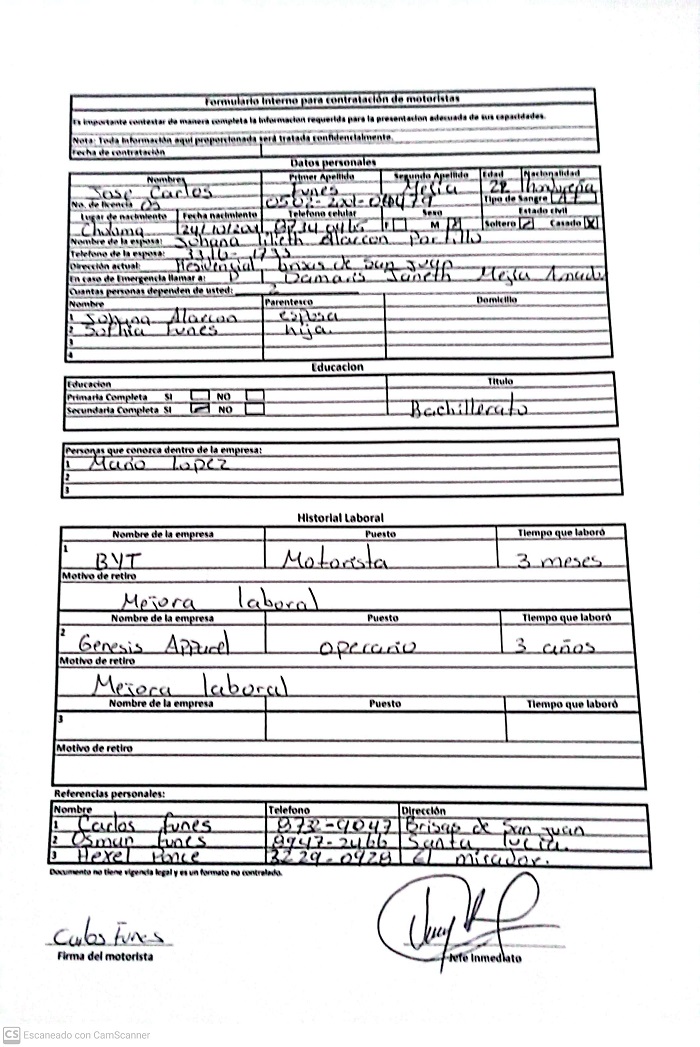 Formulario Interno para contratación de motoristas
Es importante contestar de manera completa la informacion requerida para la presentacion adecuada de sus capacidades.
Nota: Toda información aquí proporcionada será tratada confidencialmente.
Fecha de contratación
Datos personales
Nombres Primer Apellido Segundo Apellido Edad Nacionalidad
Jose Carlos Funes Mejia Hondureña
No. de licencia Tipo de Sangre
Lugar de nacimiento Fecha nacimiento Telefono celular Sexo Estado civil
Choloma F M Soltero Casado X
Nombre de la esposa: Johana Lilieth Alarcon Portillo
Telefono de la esposa: 3316-1795
Dirección actual: Residencial, brisas de San Juan
En caso de Emergencia llamar a: Damaris Janeth Mejia Amador
Cuantas personas dependen de usted: 2
Nombre Parentesco Domicilio
1 Johana Alarcon esposa
2 Sophia Funes hija
3
4
Educacion
Educacion Titulo
Primaria Completa SI NO
Secundaria Completa SI NO Bachillerato
Personas que conozca dentro de la empresa:
1 Mario Lopez
2
3
Historial Laboral
Nombre de la empresa Puesto Tiempo que laboró
1 BYT Motorista 3 meses
Motivo de retiro
Mejora laboral
Nombre de la empresa Puesto Tiempo que laboró
2 Genesis Apparel operario 3 años
Motivo de retiro
Mejora laboral
Nombre de la empresa Puesto Tiempo que laboró
3
Motivo de retiro
Referencias personales:
Nombre Telefono Dirección
1 Carlos Funes 8732-9047 Brisas de San Juan
2 Osman Funes 8947-2466 Santa Lucia.
3 Hexel Ponce 3229-0928 El mirador.
Documento no tiene vigencia legal y es un formato no controlado.
Carlos Funes
Firma del motorista Jefe Inmediato
CS Escaneado con CamScanner